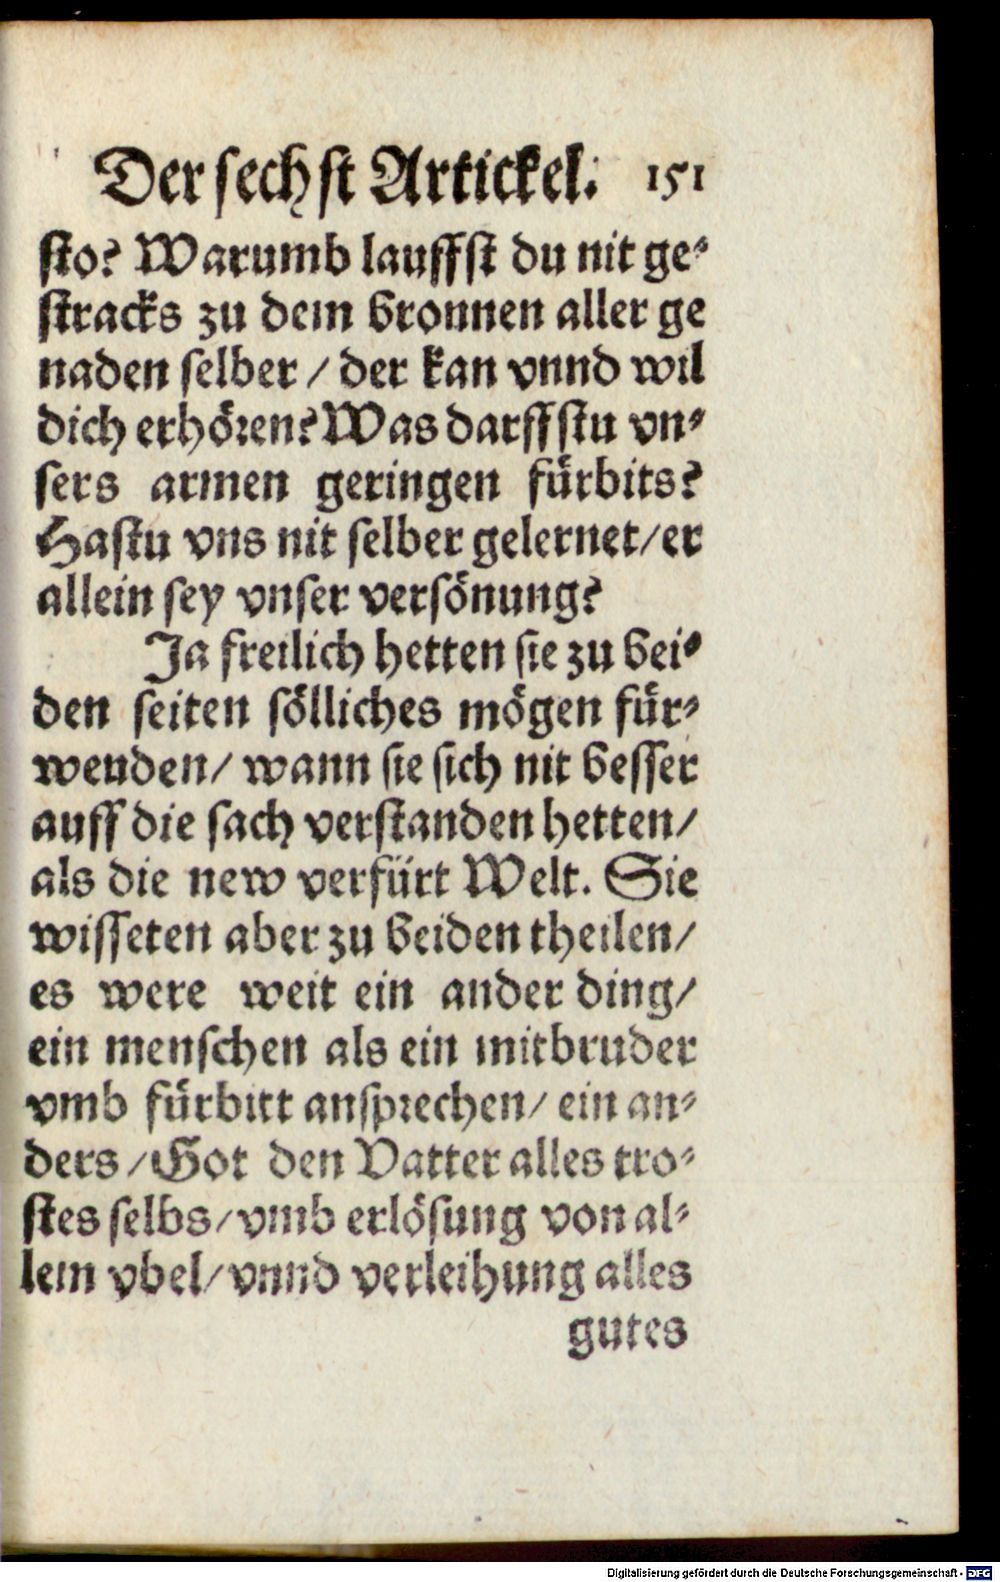 Der sechst Artickel. 151
sto? Warumb lauffst du nit ge-
stracks zu dem bronnen aller ge
naden selber / der kan vnnd wil
dich erhören? Was darffstu vn-
sers armen geringen fürbits?
Hastu vns nit selber gelernet/er
allein sey vnser versönung?
Ja freilich hetten sie zu bei-
den seiten sölliches mögen für-
wenden/ wann sie sich nit besser
auff die sach verstanden hetten/
als die new verfürt Welt. Sie
wisseten aber zu beiden theilen/
es were weit ein ander ding/
ein menschen als ein mitbruder
vmb fürbitt ansprechen/ ein an-
ders /Got den Vatter alles tro-
stes selbs/vmb erlösung von al-
lem vbel/vnnd verleihung alles
gutes
Digitalisierung gefördert durch die Deutsche Forschungsgemeinschaft - DFG